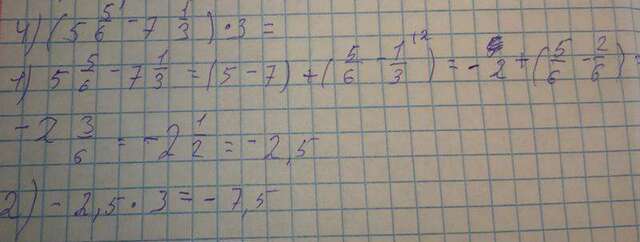 4) (5 5/6 - 7 1/3) · 3 =
1) 5 5/6 - 7 1/3 = (5 - 7) + (5/6 - 1/3 ^(2) = -2 + (5/6 - 2/6) =
- 2 3/6 = - 2 1/2 = - 2,5
2) - 2,5 · 3 = - 7,5